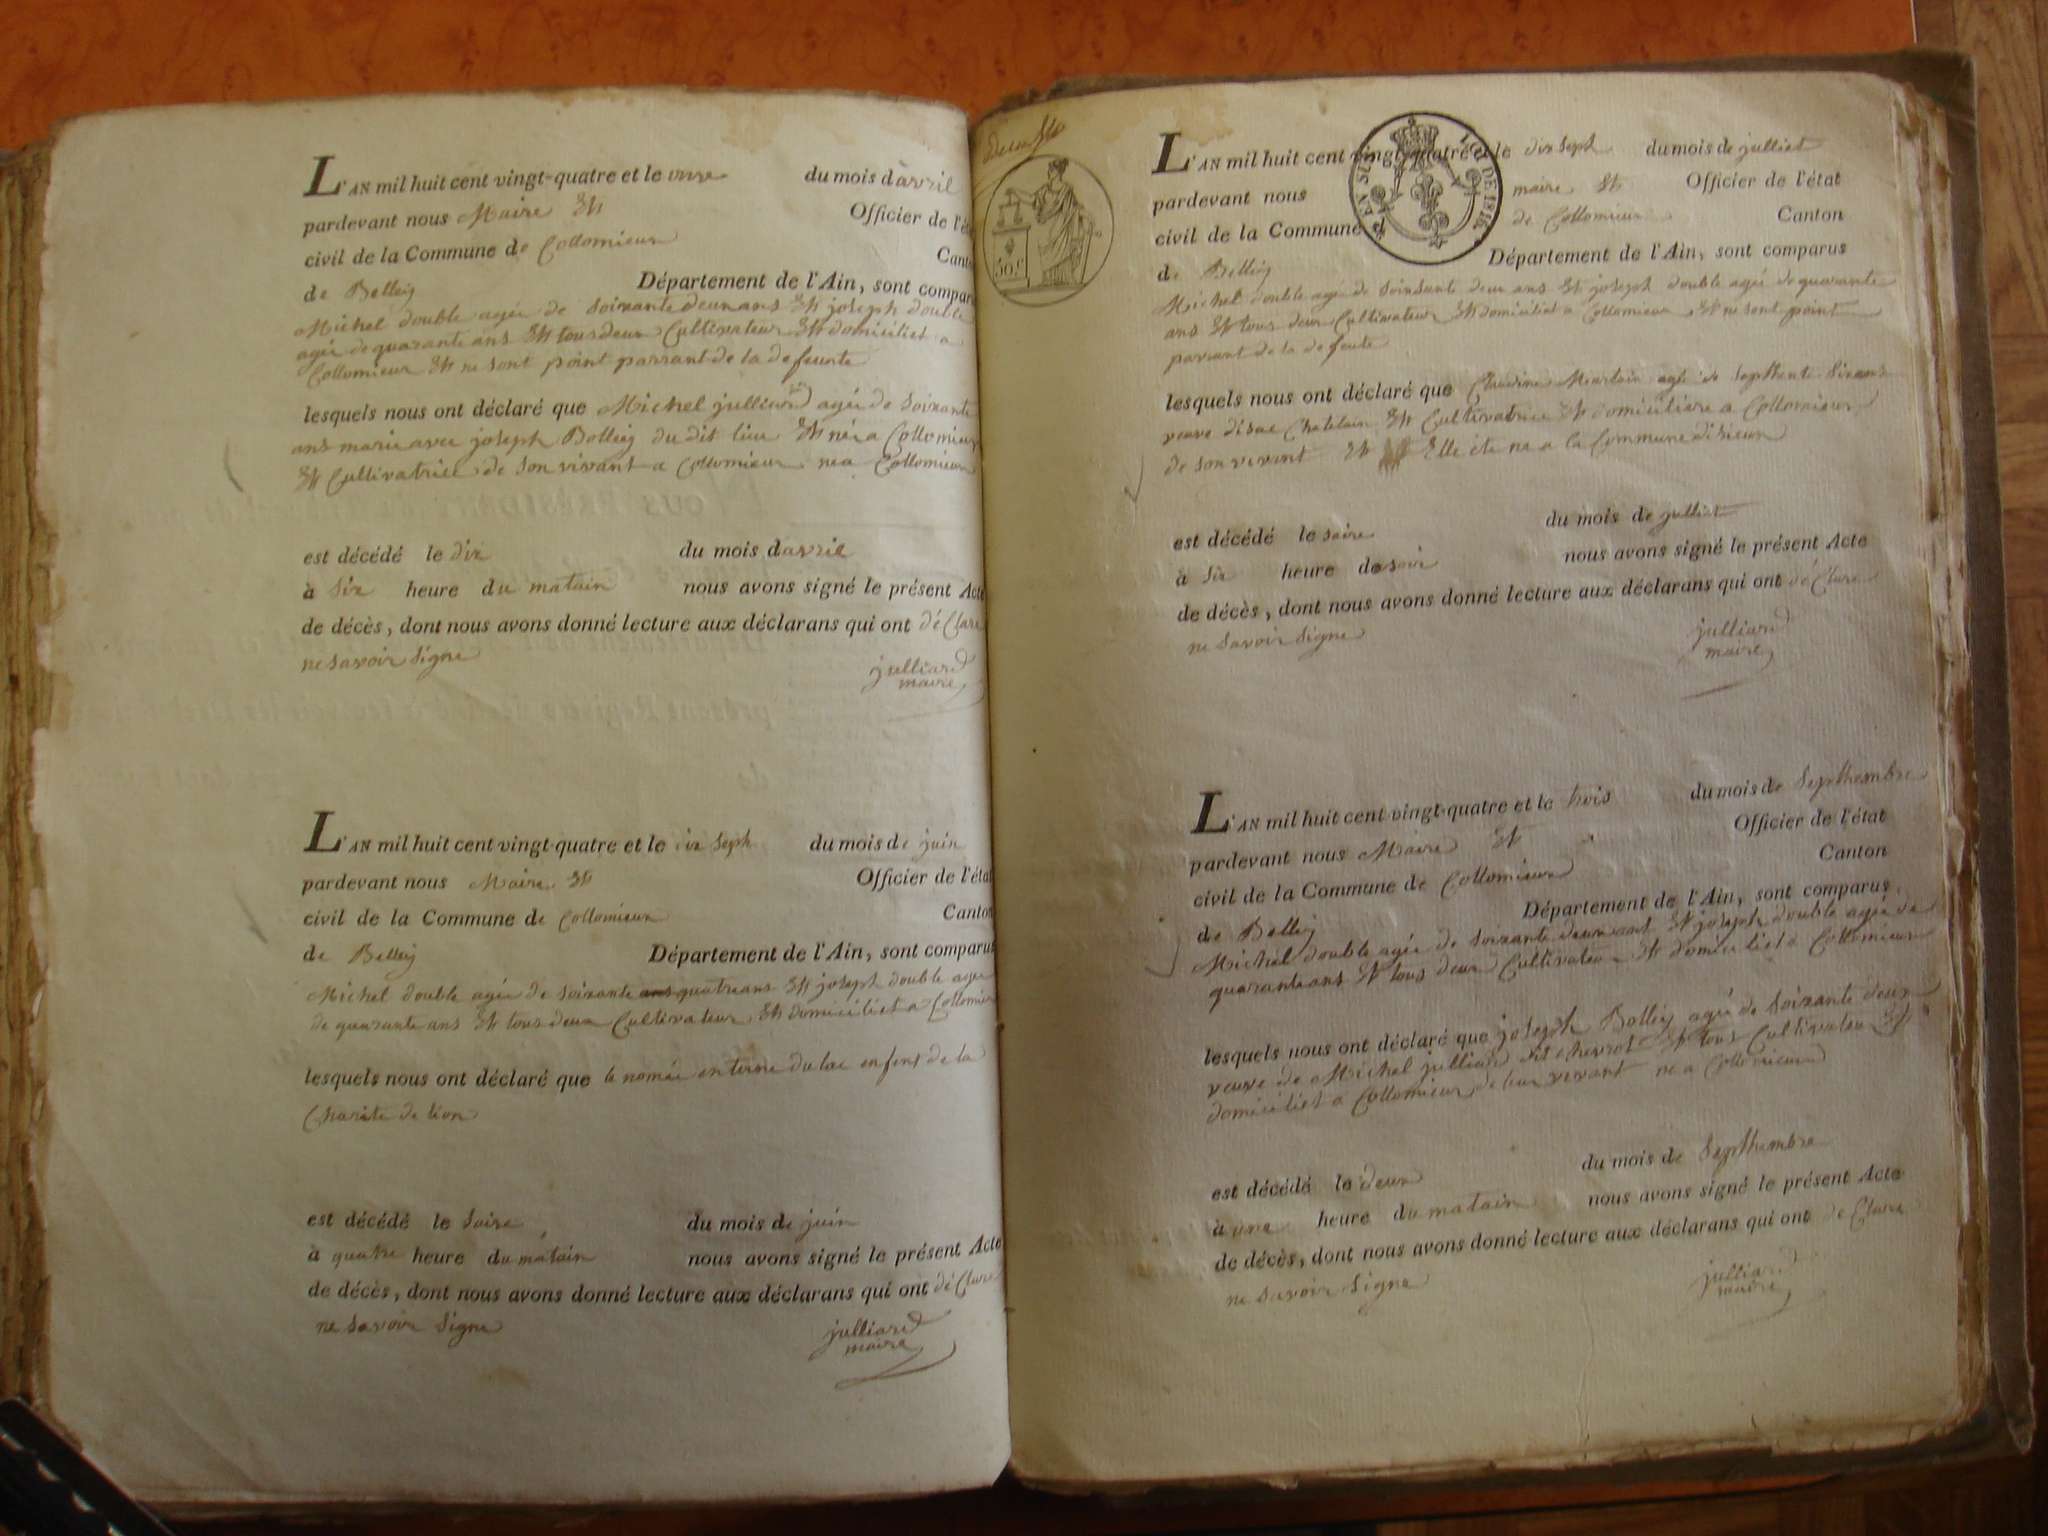 L'AN mil huit cent vingt-quatre et le onze du mois d'avril
pardevant nous Maire Et Officier de l'éta
civil de la Commune de Collomieux Cant
de Belley Département de l'Ain, sont compar
Michel double agée de soixante deux ans Et joseph double
agée de quarante ans Et tous deux Cultivateur Et domiciliet a
Collomieux Et ne sont point parrant de la defeunte
lesquels nous ont déclaré que Michel julliard agée de soixante
ans marie avec joseph Bolley du dit lieu Et née a Collomieux
Et Cultivatrice de son vivant a Collomieux nea Collomieux
est décédé le dix du mois d'avril
à six heure du matain nous avons signé le présent Acte
de décès, dont nous avons donné lecture aux déclarans qui ont déClare
ne savoir signe
julliard
maire
L'AN mil huit cent vingt-quatre et le dix seph du mois de juin
pardevant nous Maire Et Officier de l'état
civil de la Commune de Collomieux Canton
de Belley Département de l'Ain, sont comparus
Michel double agée de soixante ans quatre ans Et joseph double agée
de quarante ans Et tous deux Cultivateur Et domiciliet a Collomieu
lesquels nous ont déclaré que la nomée du lac enfent de la
Charite de lion
est décédé le saize du mois de juin
à quatre heure du matain nous avons signé le présent Acte
de décès, dont nous avons donné lecture aux déclarans qui ont déClare
ne savoir signe
julliard
maire
50.c
LOI DE 1816
L'AN mil huit cent vingt-quatre et le dix seph du mois de julliet
pardevant nous maire Et Officier de l'état
civil de la Commune de Collomieux Canton
de Belley Département de l'Ain, sont comparus
Michel double agé de soixsant deux ans Et joseph double agée de quarante
ans Et tous deux Cultivateur Et domiciliet a Collomieux Et ne sont point
parrant de la defeute
lesquels nous ont déclaré que Claudine Martain agée de sixans
veuve disac Chatelain Et Cultivatrice Et domiciliere a Collomieux
de son vivant Et Elle ete ne a la Commune
est décédé le saize du mois de julliet
à six heure de soir nous avons signé le présent Acte
de décès, dont nous avons donné lecture aux déclarans qui ont déClare
ne savoir signe
julliard
maire
L'AN mil huit cent vingt-quatre et le trois du mois de septhembre
pardevant nous Maire Et Officier de l'état
civil de la Commune de Collomieux Canton
de Belley Département de l'Ain, sont comparus
Michel double agée de soixante deux ant Et joseph double agée de
quarante ans Et tous deux Cultivateur Et domiciliet a Collomieux
lesquels nous ont déclaré que joseph Bolley agée de soixante deux
veuve de Michel julliard dit Et tous Cultivateu Et
domiciliet a Collomieux de leur vivant ne a Collomieux
est décédé le deux du mois de septhembre
à une heure du matain nous avons signé le présent Acte
de décès, dont nous avons donné lecture aux déclarans qui ont de Clare
ne savoir signe
julliard
maire